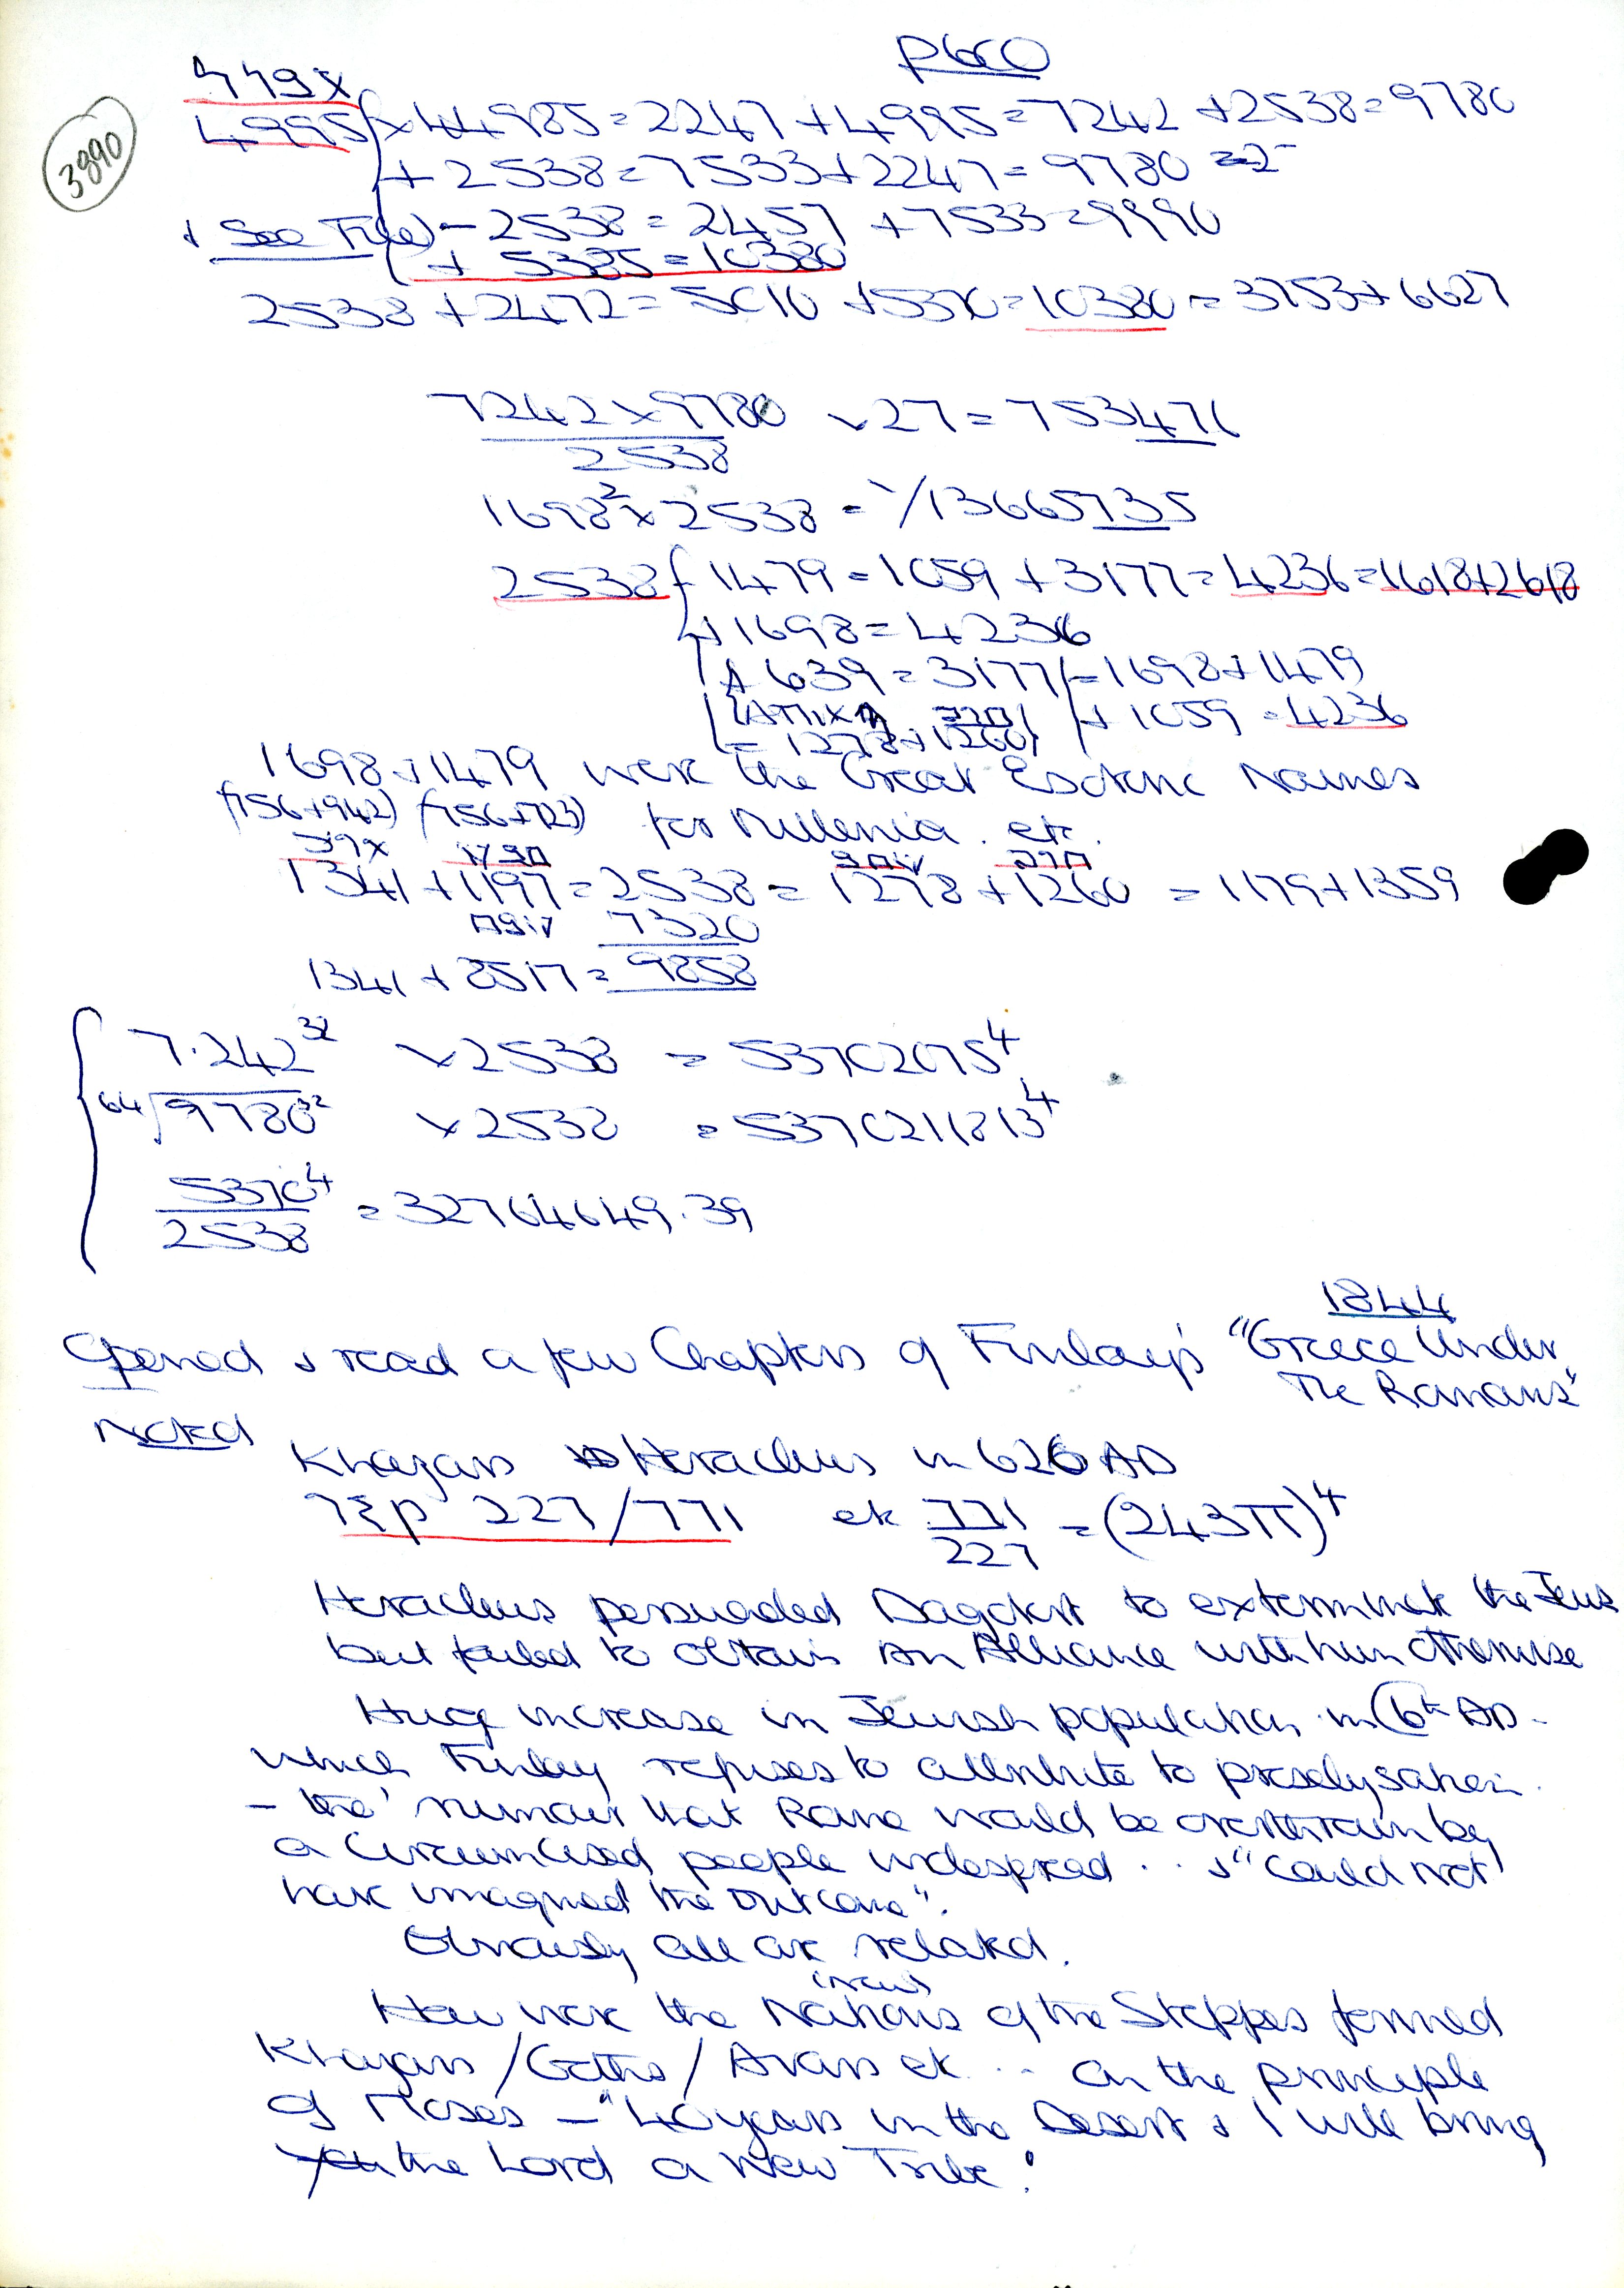 p660
3890
4995 × 44985 = 2247 + 4995 = 7242 + 2538 = 9780
+ 2538 = 7533 + 2247 = 9780
+ See File) - 2538 = 2457 + 7533 = 9990
+ 5385 = 10380
2538 + 2472 = 5010 + 5370 = 10380 = 3753 + 6627
7242 × 9780 / 2538 × 27 = 753471
1698² × 2538 = 1/13665735
2538 - 1479 = 1059 + 3177 = 4236 = 1618 + 2618
+ 1698 = 4236
+ 639 = 3177 = 1698 + 1479
+ 1059 = 4236
= 1278 + 1260
1698 + 1479 were the Great Esoteric Names
(756+942) (756+723) for Millenia. etc.
1341 + 1197 = 2538 = 1278 + 1260 = 1179 + 1359
7320
1341 + 8517 = 9858
7.242³² × 2538 = 53702075⁴
64√9780³² × 2538 = 5370211813⁴
5370⁴ / 2538 = 32764649.39
1844
Opened & read a few Chapters of Finlay's "Greece Under
The Romans"
Noted
Khazars Heraclius in 626 AD
227/771 etc 771/227 = (243π)⁴
Heraclius persuaded Dagobert to exterminate the Jews
but failed to obtain An Alliance with him otherwise
Huge increase in Jewish population in 6th AD -
which Finlay refuses to attribute to proselysation.
- the rumour that Rome would be overthrown by
a circumcised people widespread . . & "could not
have imagined the outcome".
Obviously all are related.
How were the Nations of the Steppes formed
Khazars / Goths / Avars etc . . On the principle
of Moses - "40 years in the Desert & I will bring
the Lord a new Tribe!